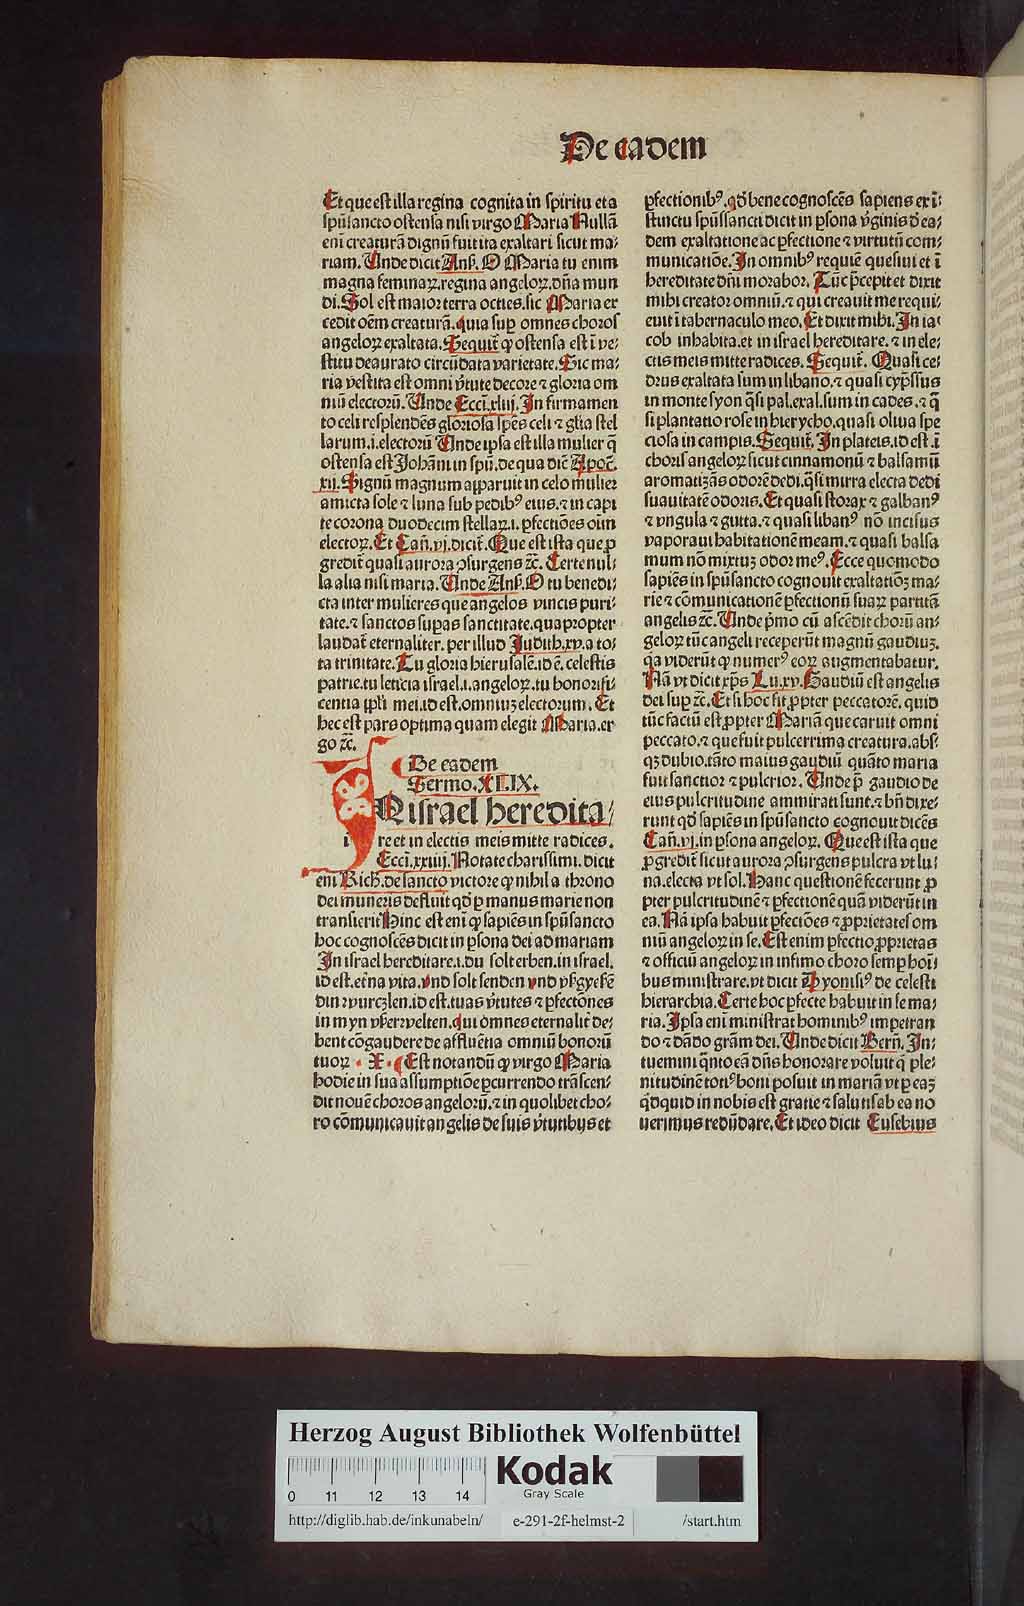 De eadem
Et que est illa regina cognita in spiritu et a
spūsancto ostensa nisi virgo Maria Nullā
enī creaturā dignū fuit ita exaltari sicut ma⸗
riam. Unde dicit Ans. O Maria tu enim
magna feminaꝝ. regina angeloꝝ. dn̄a mun
di. Sol est maior terra octies. sic Maria ex
cedit oēm creaturā. quia sup omnes choros
angeloꝝ exaltata. Sequit̄ ꝙ ostensa est ī ve⸗
stitu deaurato circūdata varietate. Sic ma⸗
ria vestita est omni v̄tute decore ⁊ gloria om
niū electorū. Unde Ecci. xliij. In firmamen
to celi resplendēs gloriosa spēs celi ⁊ glīa stel
larum. i. electorū Unde ipsa est illa mulier q̄
ostensa est Johāni in spū. de qua dic̄ Apoc̄.
xij. Signū magnum apparuit in celo mulier
amicta sole ⁊ luna sub pedibꝰ eius. ⁊ in capi
te corona duodecim stellaꝝ. i. ꝑfectiōes oīm
electoꝝ. Et Cañ. vj. dicit̄. Que est ista que ꝓ
gredit̄ quasi aurora ꝯsurgens ⁊c̄. Certe nul⸗
la alia nisi maria. Unde Ans. O tu benedi⸗
cta inter mulieres que angelos vincis puri⸗
tate. ⁊ sanctos supas sanctitate. qua propter
laudat̄ eternaliter. per illud Judith. xv. a to⸗
ta trinitate. Tu gloria hierusalē. id ē. celestis
patrie. tu leticia israel. i. angeloꝝ. tu honorifi⸗
centia ppl̄i mei. id est. omniuꝫ electorum. Et
hec est pars optima quam elegit Maria. er
go ⁊c̄.
De eadem
Sermo. XLIX.
IN israel heredita⸗
re et in electis meis mitte radices.
Ecci. xxiiij. Notate charissimi. dicit
enī Rich. de sancto victore ꝙ nihil a throno
dei muneris defluit qd̄ ꝑ manus marie non
transierit Hinc est enī ꝙ sapiēs in spūsancto
hoc cognoscēs dicit in ꝑsona dei ad mariam
In israel hereditare. i. du solt erben. in israel.
id est. et̄na vita. vnd solt senden vnd vßgyeßē
din wurczlen. id est. tuas v̄tutes ⁊ ꝑfectōnes
in myn vßerwelten. qui omnes eternalit̄ de⸗
bent cōgaudere de affluētia omniū bonorū
tuoꝝ · X · Est notandū ꝙ virgo Maria
hodie in sua assumptiōe ꝑcurrendo trāscen⸗
dit nouē choros angelorū. ⁊ in quolibet cho⸗
ro cōmunicauit angelis de suis v̄tutibus et
ꝑfectionibꝰ. qd̄ bene cognoscēs sapiens ex ī⸗
stinctu spūssancti dicit in ꝑsona v̄ginis d̄ ea⸗
dem exaltatione ac ꝑfectione ⁊ virtutū com⸗
municatiōe. In omnibꝰ requiē quesiui et ī
hereditate dn̄i morabor. Tūc p̄cepit et dixit
mihi creator omniū. ⁊ qui creauit me requi⸗
euit ī tabernaculo meo. Et dixit mihi. In ia⸗
cob inhabita. et in israel hereditare. ⁊ in ele⸗
ctis meis mitte radices. Sequit̄. Quasi ce⸗
drus exaltata sum in libano. ⁊ quasi cyp̄ssus
in monte syon q̄si pal. exal. sum in cades. ⁊ q̄
si plantatio rose in hierycho. quasi oliua spe
ciosa in campis. Sequit̄. In plateis. id est. ī
choris angeloꝝ sicut cinnamonū ⁊ balsamū
aromatizās odorē dedi. q̄si mirra electa dedi
suauitatē odoris. Et quasi storax ⁊ galbanꝰ
⁊ vngula ⁊ gutta. ⁊ quasi libanꝰ nō incisus
vaporaui habitationē meam. ⁊ quasi balsa
mum nō mixtuꝫ odor meꝰ. Ecce quomodo
sapiēs in spūsancto cognouit exaltatiōꝫ ma⸗
rie ⁊ cōmunicationē ꝑfectionū suaꝝ partitā
angelis ⁊c̄. Unde p̄mo cū ascēdit chorū an⸗
geloꝝ tūc angeli receperūt magnū gaudiuꝫ.
q̄a viderūt ꝙ numerꝰ eoꝝ augmentabatur.
Nā vt dicit xp̄s Lu. xv. Gaudiū est angelis
dei sup ⁊c̄. Et si hoc fit ꝓpter peccatorē. quid
tūc faciū est ꝓpter Mariā que caruit omni
peccato. ⁊ que fuit pulcerrima creatura. abs⸗
qꝫ dubio. tāto maius gaudiū quāto maria
fuit sanctior ⁊ pulcrior. Unde p̄ gaudio de
eius pulcritudine ammirati sunt. ⁊ bn̄ dixe⸗
runt qd̄ sapiēs in spūsancto cognouit dicēs
Cañ. vj. in ꝑsona angeloꝝ. Que est ista que
ꝓgredit̄ sicut aurora ꝯsurgens pulcra vt lu⸗
na. electa vt sol. Hanc questionē fecerunt ꝓ
pter pulcritudinē ⁊ ꝑfectionē quā viderūt in
ea. Nā ipsa habuit ꝑfectiōes ⁊ ꝓprietates om
niū angeloꝝ in se. Est enim ꝑfectio ꝓprietas
⁊ officiū angeloꝝ in infimo choro semꝑ hoī⸗
bus ministrare. vt dicit Dyonisiꝰ de celesti
hierarchia. Certe hoc ꝑfecte habuit in se ma⸗
ria. Ipsa enī ministrat hominibꝰ impetran
do ⁊ dādo grām dei. Unde dicit Berñ. In⸗
tuemini q̄nto eā dn̄s honorare voluit q̄ ple⸗
nitudinē totiꝰ boni posuit in mariā vt ꝑ eaꝫ
q̄dquid in nobis est gratie ⁊ salutis ab ea no
uerimus redūdare. Et ideo dicit Eusebius
Herzog August Bibliothek Wolfenbüttel
Kodak
Gray Scale
0 11 12 13 14
http://diglib.hab.de/inkunabeln/ e-291-2f-helmst-2 /start.htm